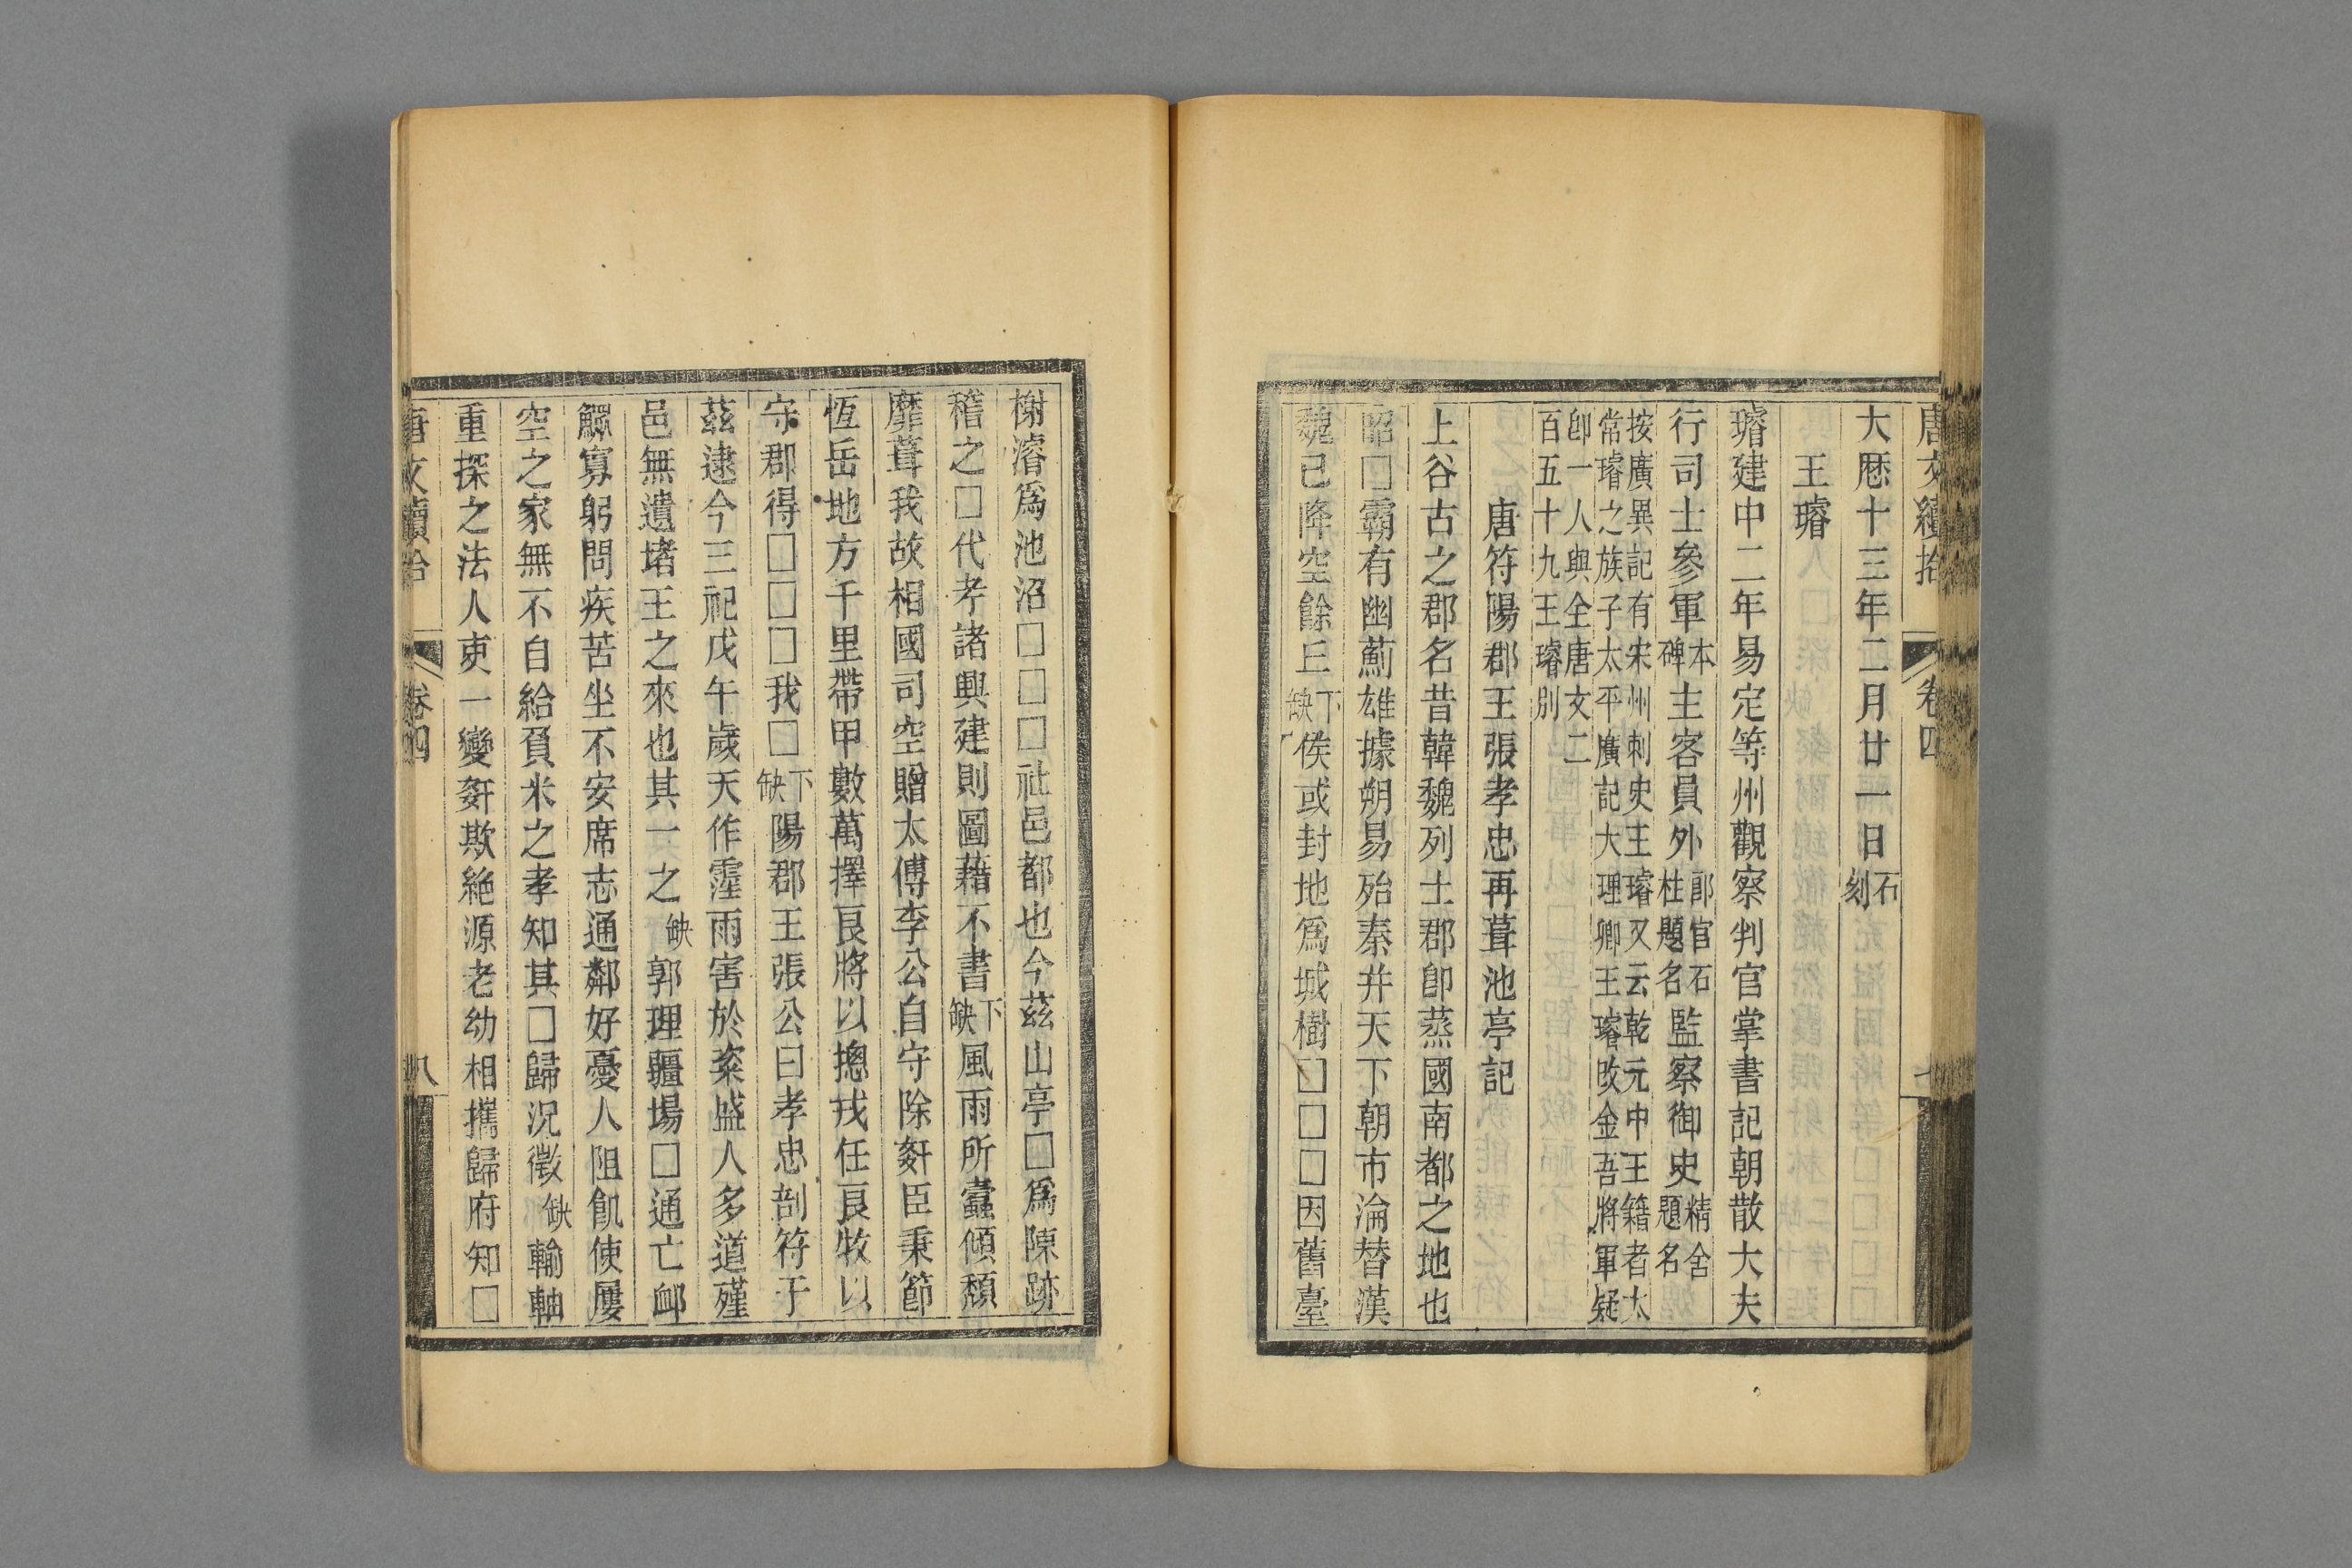 唐文續拾 卷四
大厯十三年二月廿一日石刻
王璿
璿建中二年易定等州觀察判官掌書記朝散大夫
行司士參軍本碑主客員外郎官石柱題名監察御史精舍題名
按廣異記有宋州刺史王璿又云乾元中王籍者太
常璿之族子太平廣記大理卿王璿改金吾將軍疑
卽一人與全唐文二
百五十九王璿別
唐符陽郡王張孝忠再葺池亭記
上谷古之郡名昔韓魏列土郡卽燕國南都之地也
昭□霸有幽薊雄據朔易殆秦并天下朝市淪替漢
魏已降空餘丘下缺侯或封地爲城樹□□□因舊臺
榭濬爲池沼□□□社邑都也今茲山亭□爲陳跡
稽之□代孝諸興建則圖藉不書下缺風雨所蠹傾頹
靡葺我故相國司空贈太傅李公自守除姧臣秉節
恆岳地方千里帶甲數萬擇良將以摠戎任良牧以
守郡得□□□我□下缺陽郡王張公曰孝忠剖符于
茲逮今三祀戊午歲天作霪雨害於粢盛人多道殣
邑無遺堵王之來也其一之缺郭理疆場□通亡卹
鰥寡躬問疾苦坐不安席志通鄰好憂人阻飢使屢
空之家無不自給負米之孝知其□歸況徵缺輸軸
重探之法人吏一變姧欺絶源老幼相攜歸府知□
唐文續拾 卷四 八